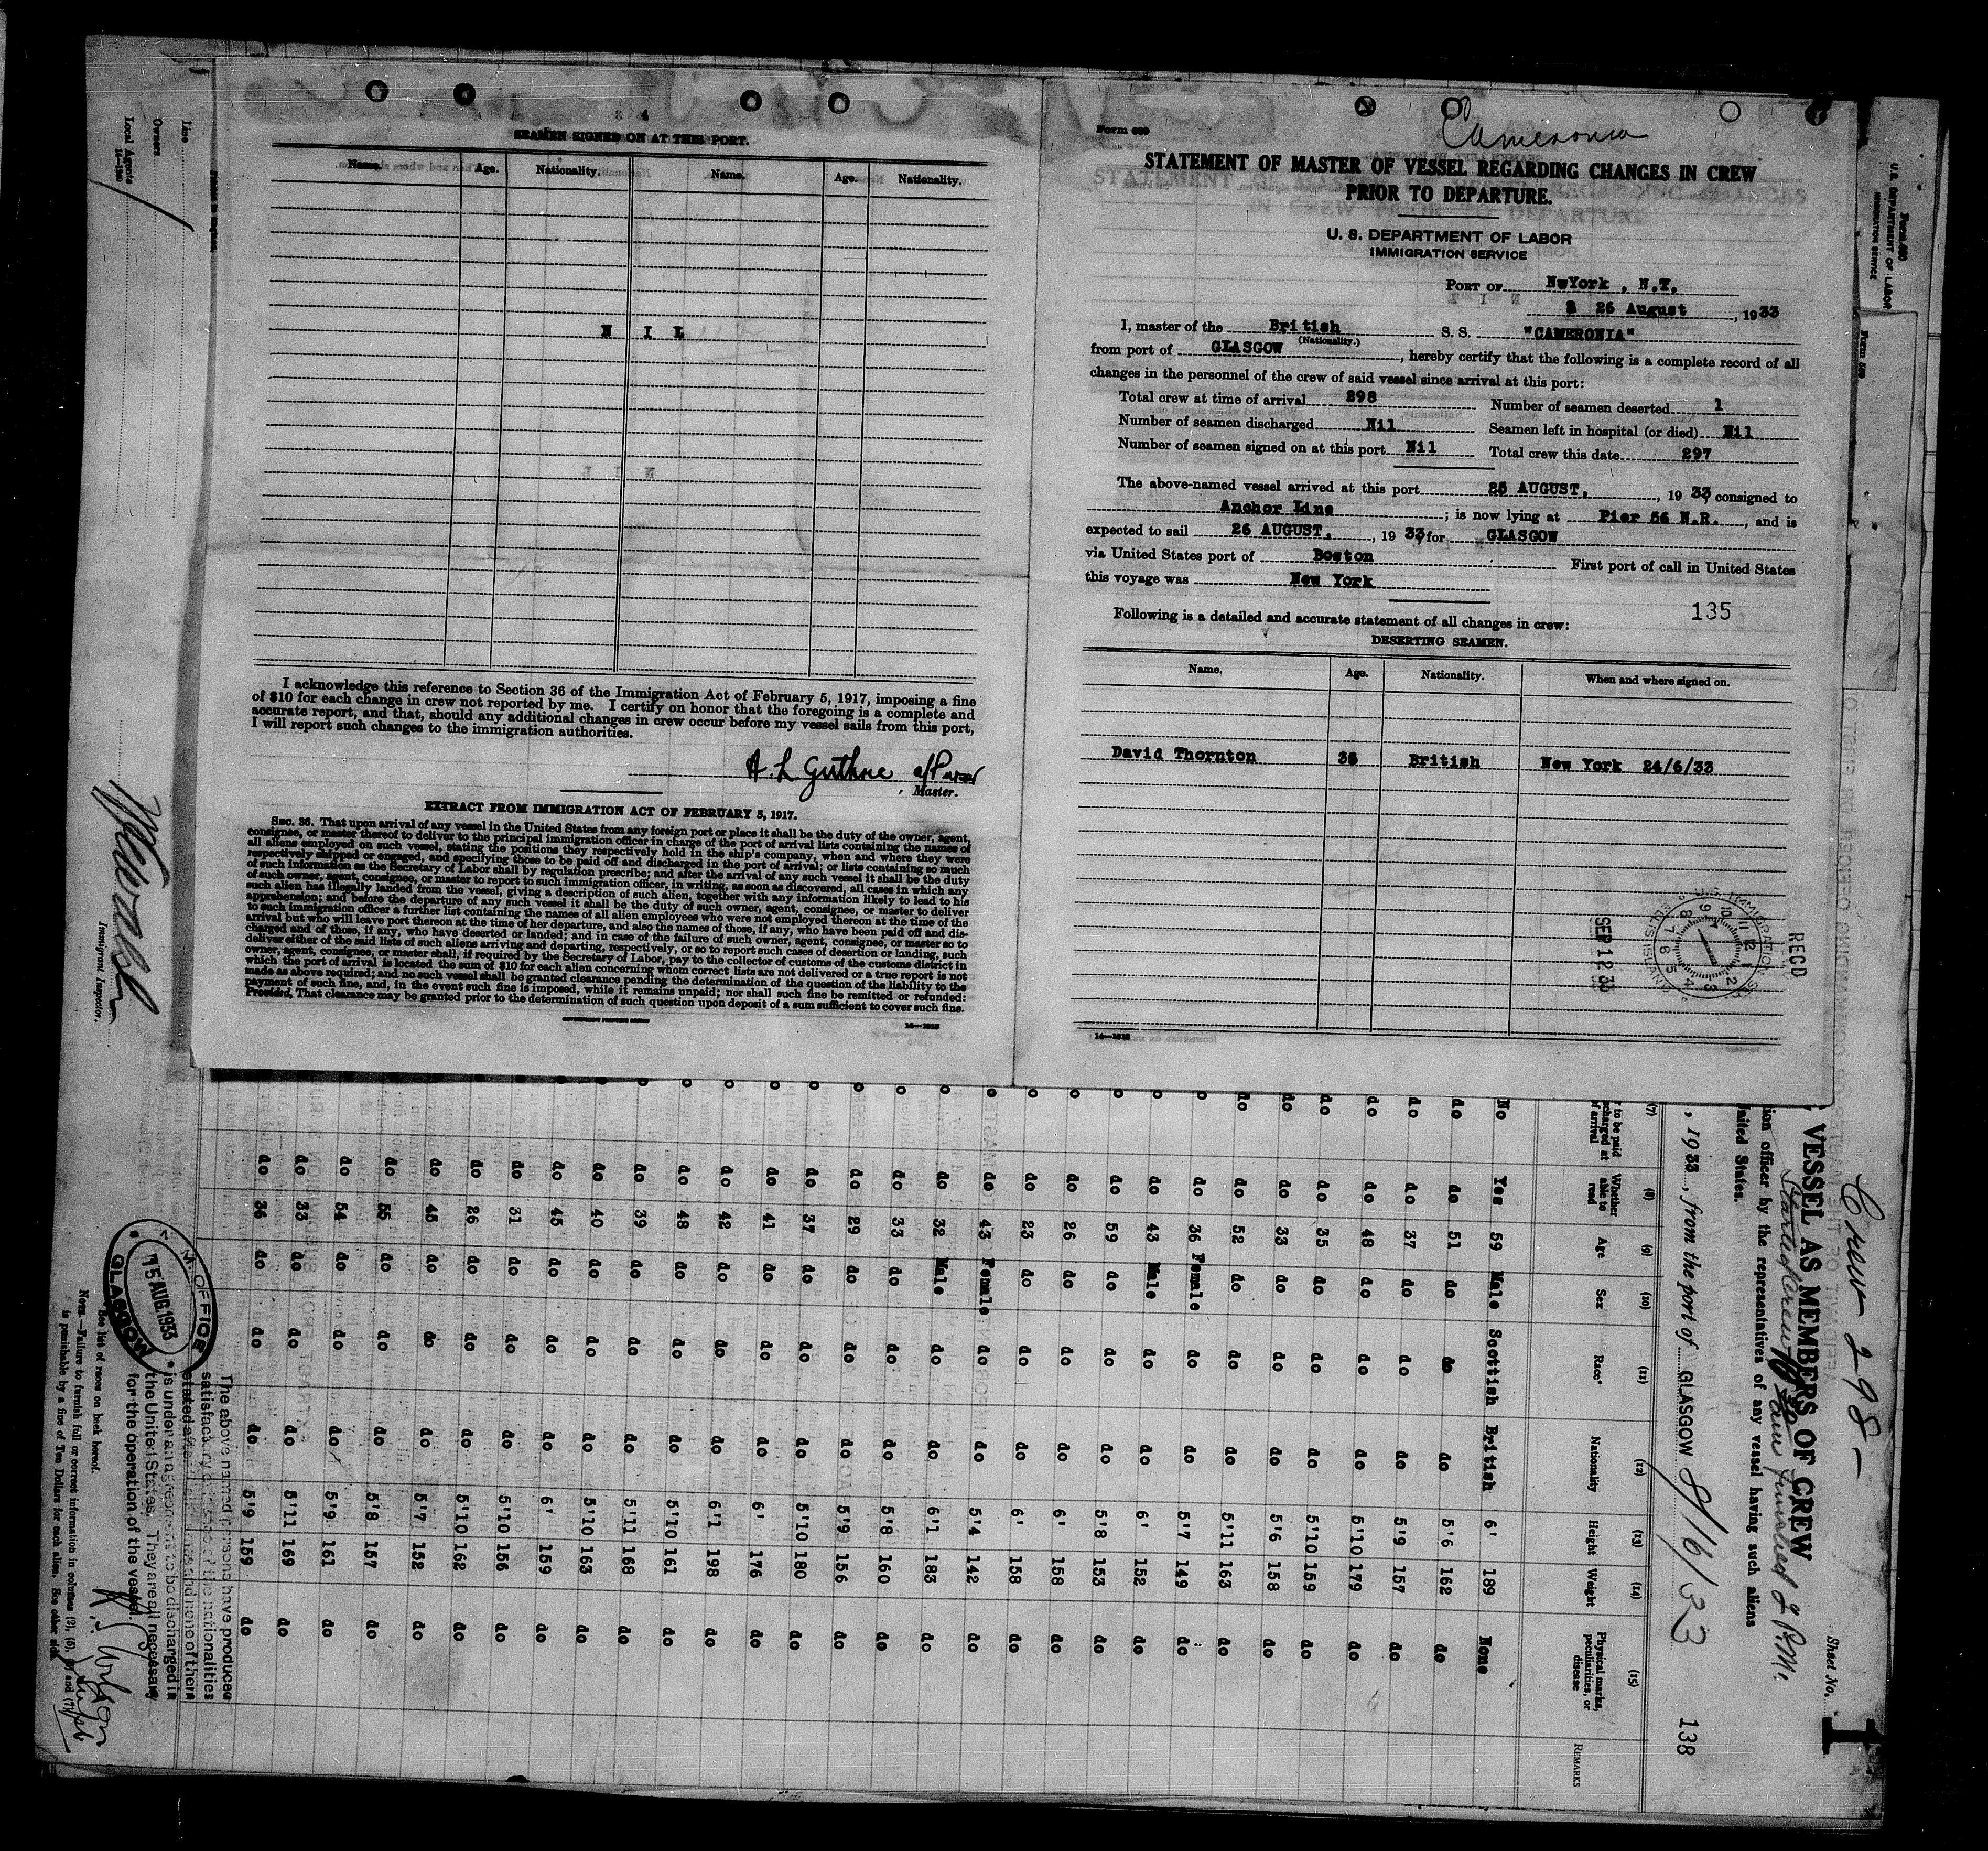 SEAMEN SIGNED ON AT THIS PORT.
Name. Age. Nationality. Name. Age. Nationality.
N I L
I acknowledge this reference to Section 36 of the Immigration Act of February 5, 1917, imposing a fine
of $10 for each change in crew not reported by me. I certify on honor that the foregoing is a complete and
accurate report, and that, should any additional changes in crew occur before my vessel sails from this port,
I will report such changes to the immigration authorities.
A L Guthrie a/Purser
, Master.
EXTRACT FROM IMMIGRATION ACT OF FEBRUARY 5, 1917.
SEC. 36. That upon arrival of any vessel in the United States from any foreign port or place it shall be the duty of the owner, agent,
consignee, or master thereof to deliver to the principal immigration officer in charge of the port of arrival lists containing the names of
all aliens employed on such vessel, stating the positions they respectively hold in the ship's company, when and where they were
respectively shipped or engaged, and specifying those to be paid off and discharged in the port of arrival; or lists containing so much
of such information as the Secretary of Labor shall by regulation prescribe; and after the arrival of any such vessel it shall be the duty
of such owner, agent, consignee, or master to report to such immigration officer, in writing, as soon as discovered, all cases in which any
such alien has illegally landed from the vessel, giving a description of such alien, together with any information likely to lead to his
apprehension; and before the departure of any such vessel it shall be the duty of such owner, agent, consignee, or master to deliver
to such immigration officer a further list containing the names of all alien employees who were not employed thereon at the time of the
arrival but who will leave port thereon at the time of her departure, and also the names of those, if any, who have been paid off and dis-
charged and of those, if any, who have deserted or landed; and in case of the failure of such owner, agent, consignee, or master so to
deliver either of the said lists of such aliens arriving and departing, respectively, or so to report such cases of desertion or landing, such
owner, agent, consignee, or master shall, if required by the Secretary of Labor, pay to the collector of customs of the customs district in
which the port of arrival is located the sum of $10 for each alien concerning whom correct lists are not delivered or a true report is not
made as above required; and no such vessel shall be granted clearance pending the determination of the question of the liability to the
payment of such fine, and, in the event such fine is imposed, while it remains unpaid; nor shall such fine be remitted or refunded:
Provided, That clearance may be granted prior to the determination of such question upon deposit of a sum sufficient to cover such fine.
Form 689
Cameronia
STATEMENT OF MASTER OF VESSEL REGARDING CHANGES IN CREW
PRIOR TO DEPARTURE.
U. S. DEPARTMENT OF LABOR
IMMIGRATION SERVICE
PORT OF NwYork , N.Y.
26 August , 1933
I, master of the British S. S. "CAMERONIA"
(Nationality.)
from port of GLASGOW , hereby certify that the following is a complete record of all
changes in the personnel of the crew of said vessel since arrival at this port:
Total crew at time of arrival 298 Number of seamen deserted 1
Number of seamen discharged Nil Seamen left in hospital (or died) Nil
Number of seamen signed on at this port Nil Total crew this date 297
The above-named vessel arrived at this port 25 AUGUST, , 19 33, consigned to
Anchor Line ; is now lying at Pier 56 N.R. , and is
expected to sail 26 AUGUST. , 19 33, for GLASGOW
via United States port of Boston First port of call in United States
this voyage was New York
135
Following is a detailed and accurate statement of all changes in crew:
DESERTING SEAMEN.
Name. Age. Nationality. When and where signed on.
David Thornton 36 British New York 24/6/33
RECD
SEP 12 33
U.S. IMMIGRATION SER
ELLIS ISLAND
Line
Owners
Local Agents
Immigrant Inspector.
U.S. DEPARTMENT OF LABOR
IMMIGRATION SERVICE
Crew 298 -
Sheet No. 1
VESSEL AS MEMBERS OF CREW
ion officer by the representatives of any vessel having such aliens
nited States.
, 1933, from the port of GLASGOW 8/16/33
138
(7) (8) (9) (10) (11) (12) (13) (14) (15)
Whether able to read Age Sex Race* Nationality Height Weight Physical marks, peculiarities, or disease REMARKS
No Yes 59 Male Scottish British 6' 189 None
do do 51 do do do 5'6 162 do
do do 37 do do do 5'9 157 do
do do 48 do do do 5'10 179 do
do do 35 do do do 5'10 159 do
do do 33 do do do 5'6 158 do
do do 52 do do do 5'11 163 do
do 36 Female do do 5'7 149 do
do 43 Male do do 6' 152 do
do 59 do do do 5'8 153 do
do 26 do do do 6' 158 do
do 23 do do do 6' 158 do
do 43 Female do do 5'4 142 do
do 32 Male do do 6'1 183 do
do 33 do do do 5'8 160 do
do 29 do do do 5'9 156 do
do 37 do do do 5'10 180 do
do 41 do do do 6' 176 do
do 42 do do do 6'1 198 do
do 48 do do do 5'10 161 do
do 39 do do do 5'11 168 do
do 40 do do do 5'10 163 do
do 45 do do do 6' 159 do
do 31 do do do 5'10 156 do
do 26 do do do 5'10 162 do
do 45 do do do 5'7 152 do
do 55 do do do 5'8 157 do
do 54 do do do 5'9 161 do
do 33 do do do 5'11 169 do
do 36 do do do 5'9 159 do
The above named persons have produced
satisfactory of the nationalities
stated and none of them
is under an agreement to be discharged in
the United States. They are all necessary
for the operation of the vessel.
OFFICE
15 AUG. 1933
GLASGOW
See list of races on back hereof.
NOTE.—Failure to furnish full or correct information in columns (2), (5), and (7)
is punishable by a fine of Ten Dollars for each alien. See other side.